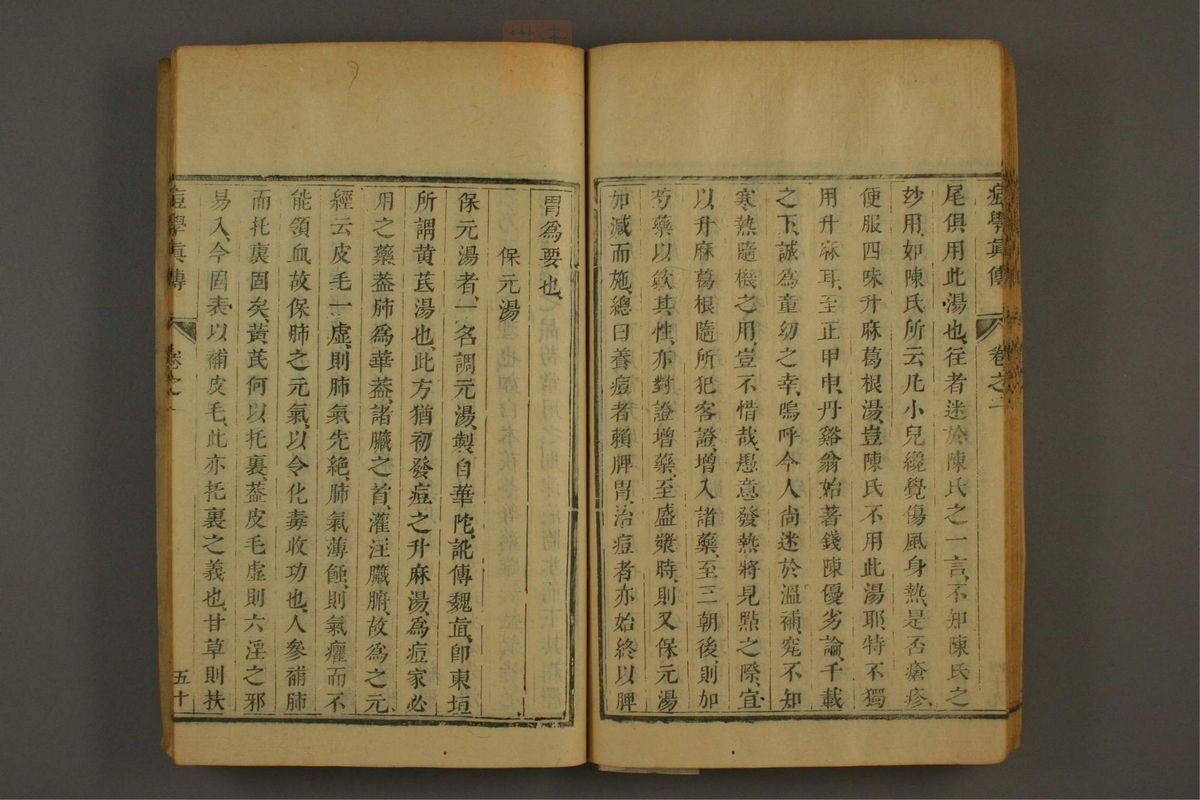 痘學眞傳 卷之二
尾俱用此湯也、往者迷於陳氏之一言、不知陳氏之
妙用、如陳氏所云、凡小兒纔覺傷風身熱、是否瘡疹、
便服四味升麻葛根湯、豈陳氏不用此湯耶、特不獨
用升麻耳、至正甲申、丹谿翁始著錢陳優劣論、千載
之下、誠爲童幼之幸、嗚呼今人尚迷於溫補、寃不知
寒熱隨機之用、豈不惜哉、愚意發熱將見點之際、宜
以升麻葛根隨所犯客證、增入諸藥、至三朝後、則加
芍藥以歛其性、亦對證增藥、至盛漿時、則又保元湯
加減而施、總曰養痘者賴脾胃、治痘者亦始終以脾
胃爲要也、
保元湯
保元湯者、一名調元湯、製自華陀、訛傳魏直、卽東垣
所謂黄芪湯也、此方猶初發痘之升麻湯、爲痘家必
用之藥、蓋肺爲華蓋、諸臟之首、灌注臟腑、故爲之元、
經云皮毛一虛、則肺氣先絶、肺氣薄蝕、則氣癰而不
能領血、故保肺之元氣、以令化毒收功也、人參補肺
而托裏固矣、黃芪何以托裏、蓋皮毛虛則六淫之邪
易入、今固表以補皮毛、此亦托裏之義也、甘草則扶
痘學眞傳 卷之 五十